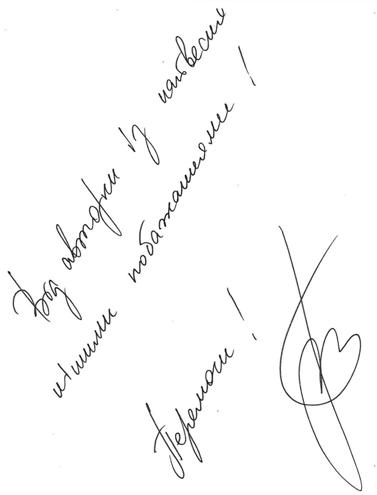 Від авторки із найвесня
нішими побажаннями!
Перемоги!